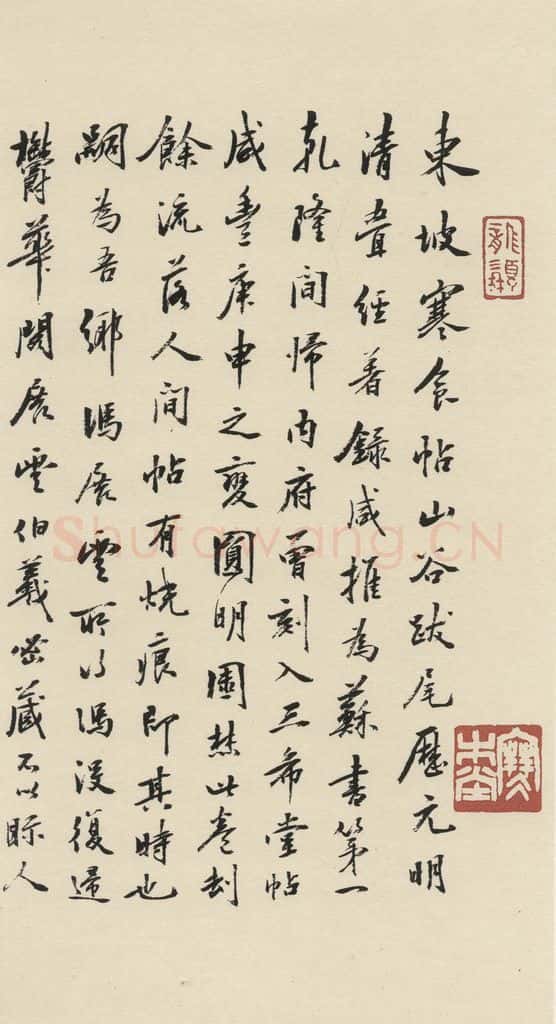 東坡寒食帖山谷跋尾歷元明
清疊經著錄咸推為蘇書第一
乾隆間歸內府曾刻入三希堂帖
咸豐庚申之變圓明園焚此卷劫
餘流落人間帖有燒痕即其時也
嗣為吾鄉馮展雲所得馮沒復歸
鬱華閣展雲伯羲密藏不以眎人
Shufawang.CN